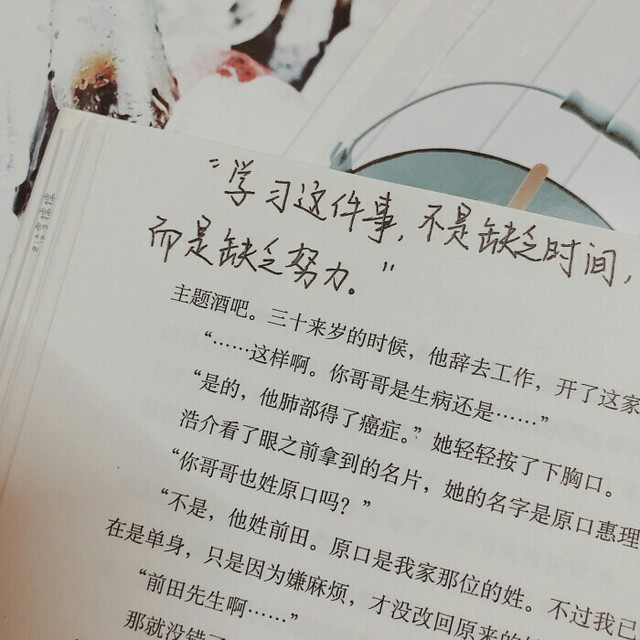 “学习这件事，不是缺乏时间，
而是缺乏努力。”
主题酒吧。三十来岁的时候，他辞去工作，开了这家
“……这样啊。你哥哥是生病还是……”
“是的，他肺部得了癌症。”她轻轻按了下胸口。
浩介看了眼之前拿到的名片，她的名字是原口惠理
“你哥哥也姓原口吗？”
“不是，他姓前田。原口是我家那位的姓。不过我已
在是单身，只是因为嫌麻烦，才没改回原来的
“前田先生啊……”
那就没错了